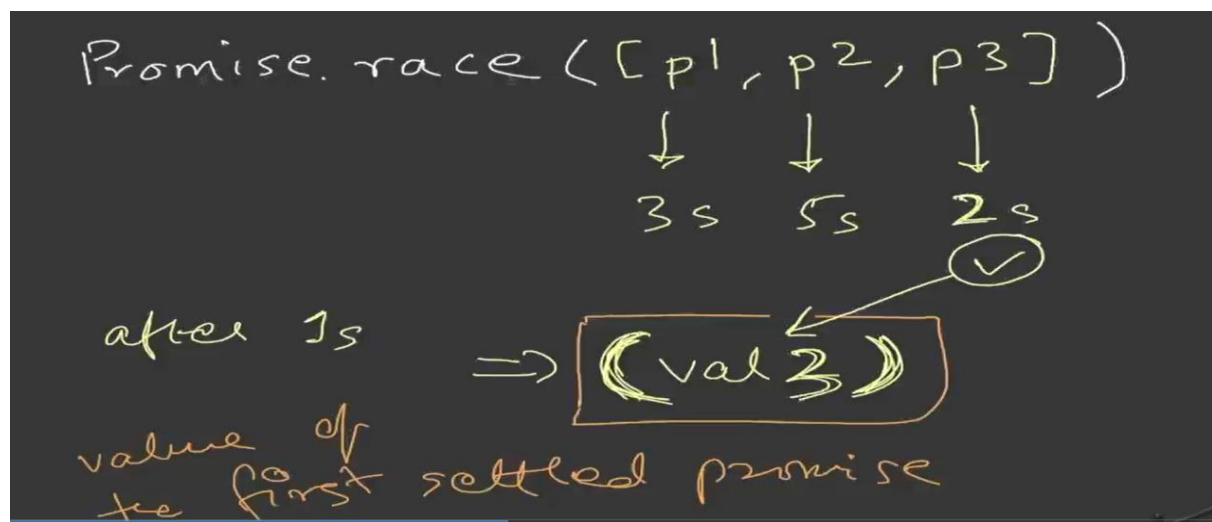 Promise.race([p1, p2, p3])
3s 5s 2s
after 1s
=> (val 3)
value of
the first settled promise